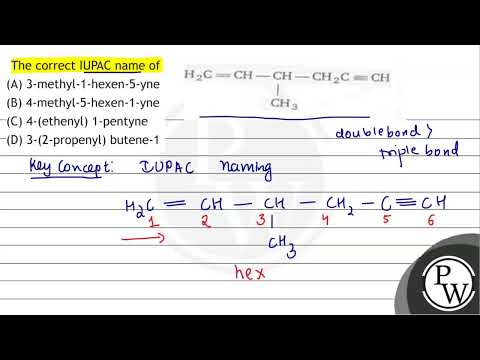 The correct IUPAC name of
H₂C=CH—CH—H₂CC≡CH
CH₃
(A) 3-methyl-1-hexen-5-yne
(B) 4-methyl-5-hexen-1-yne
(C) 4-(ethenyl) 1-pentyne
(D) 3-(2-propenyl) butene-1
doublebond >
triple bond
Key Concept: IUPAC naming
H₂C = CH — CH — CH₂ — C≡CH
1 2 3 4 5 6
CH₃
hex
PW